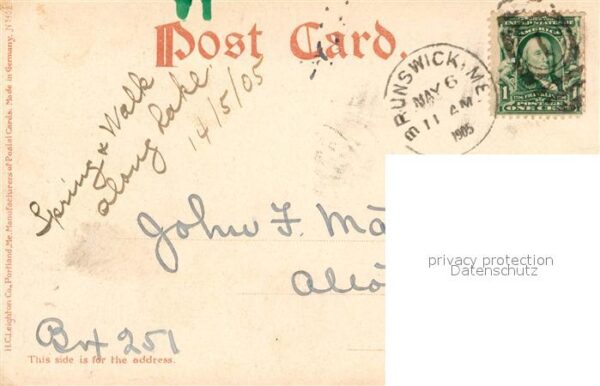 Post Card.
BRUNSWICK, ME.
MAY 6
11 AM
1905
UNITED STATES OF AMERICA
1
1
ONE CENT
Spring & Walk
along Lake
14/5/05
John F. Ma
Box 251
This side is for the address.
H.C. Leighton Co., Portland, Me. Manufacturers of Postal Cards. Made in Germany.
privacy protection
Datenschutz